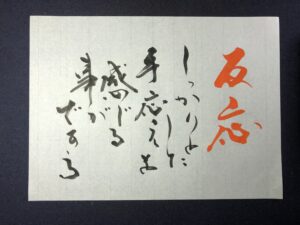 反応
しっかりとした
手応えを
感じる
事が
できる